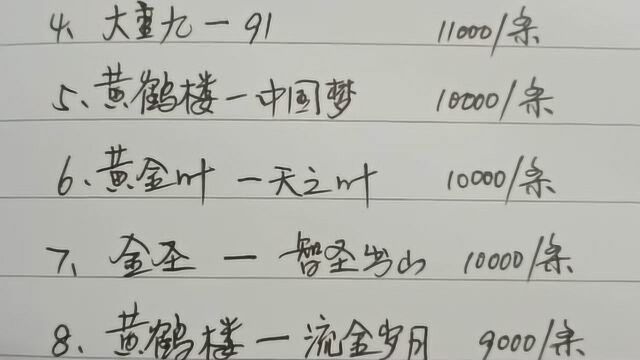 4、大重九一91 11000/条
5、黄鹤楼一中国梦 10000/条
6、黄金叶一天之叶 10000/条
7、金圣一智圣出山 10000/条
8、黄鹤楼一流金岁月 9000/条